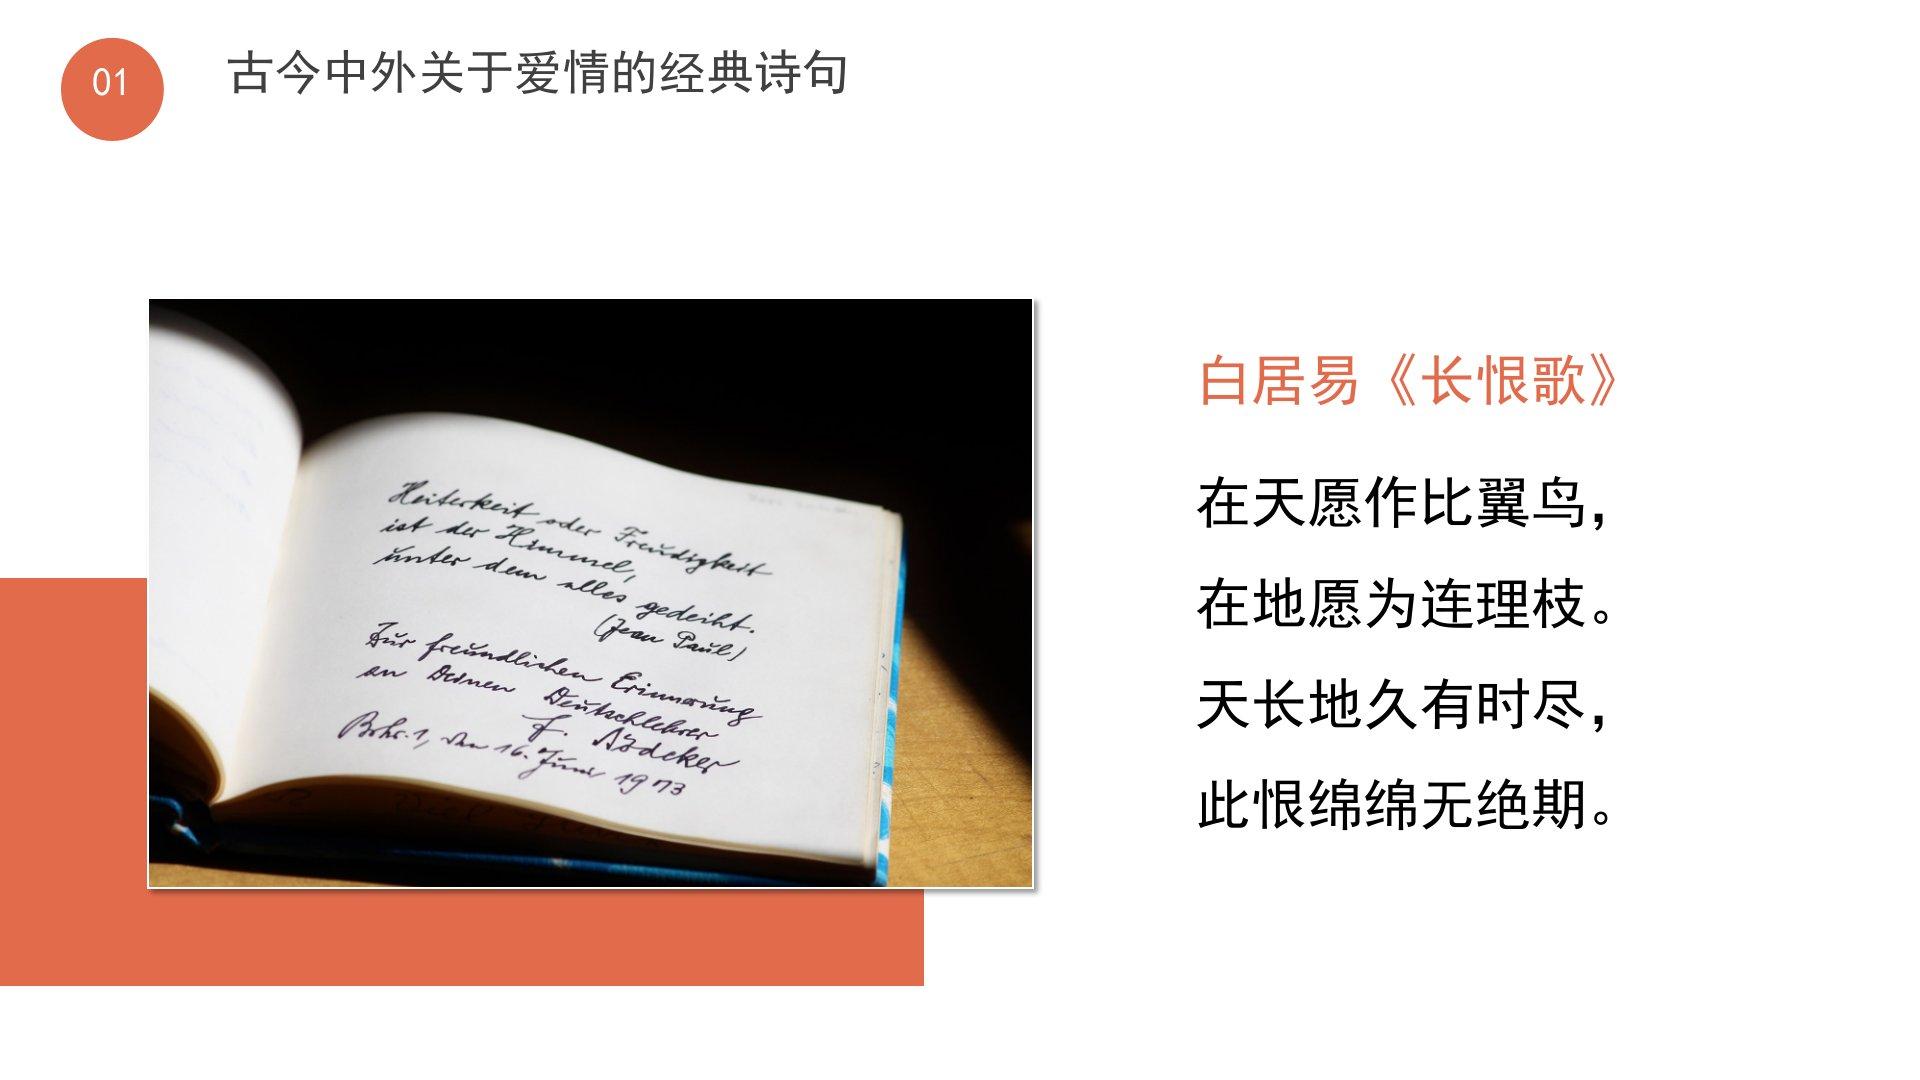 01
古今中外关于爱情的经典诗句
Heiterkeit oder Freudigkeit
ist der Himmel,
unter dem alles gedeiht.
(Jean Paul)
Zur freundlichen Erinnerung
an Deinen Deutschlehrer
F.
den 16. Juni 1973
白居易《长恨歌》
在天愿作比翼鸟，
在地愿为连理枝。
天长地久有时尽，
此恨绵绵无绝期。